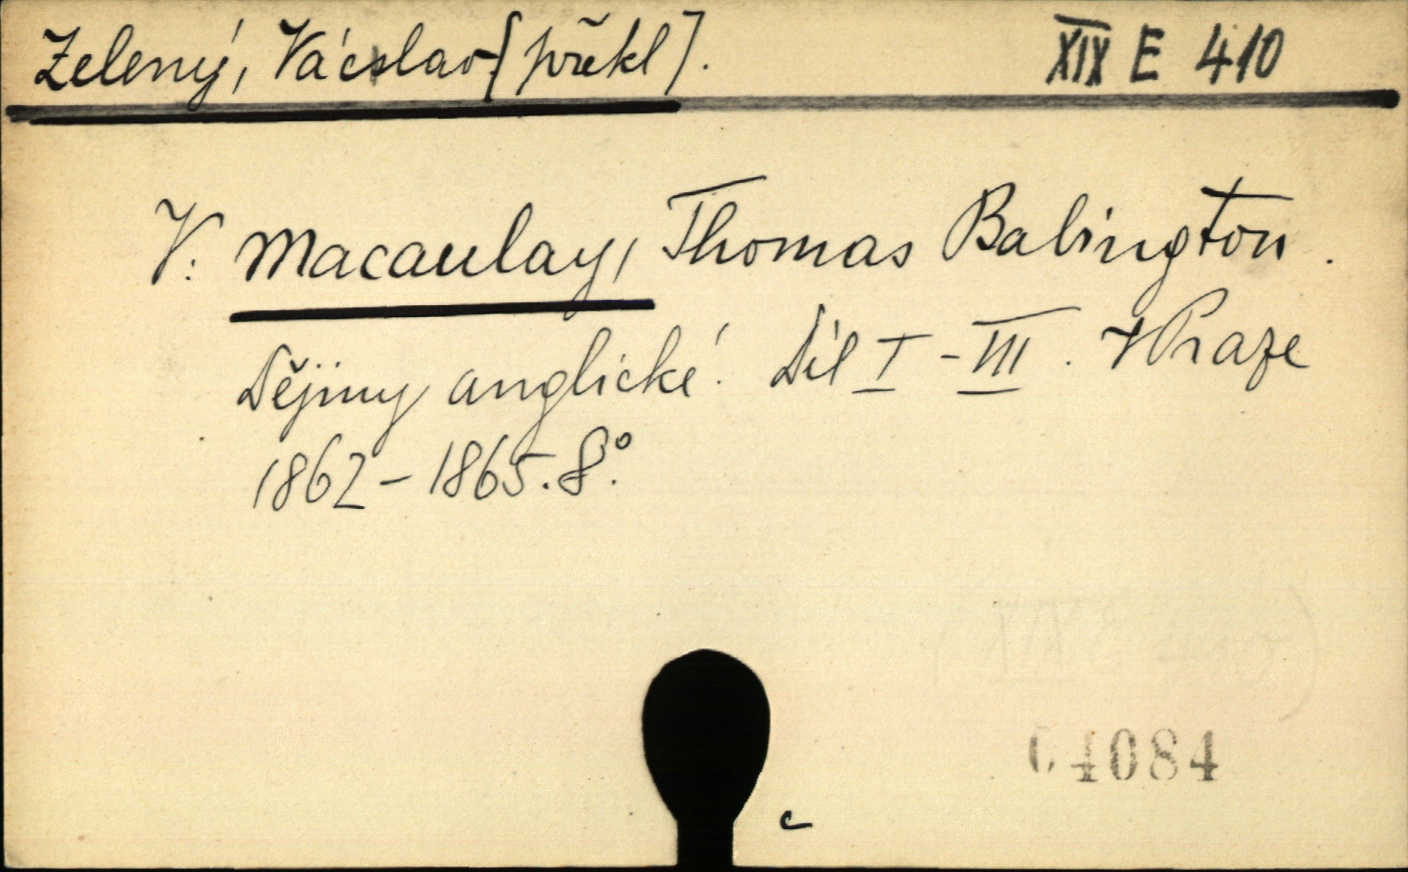 Zelený, Václav [překl].
XIX E 410
V: Macaulay, Thomas Babington.
Dějiny anglické. Díl I - III. V Praze
1862 - 1865. 8°.
4084
c